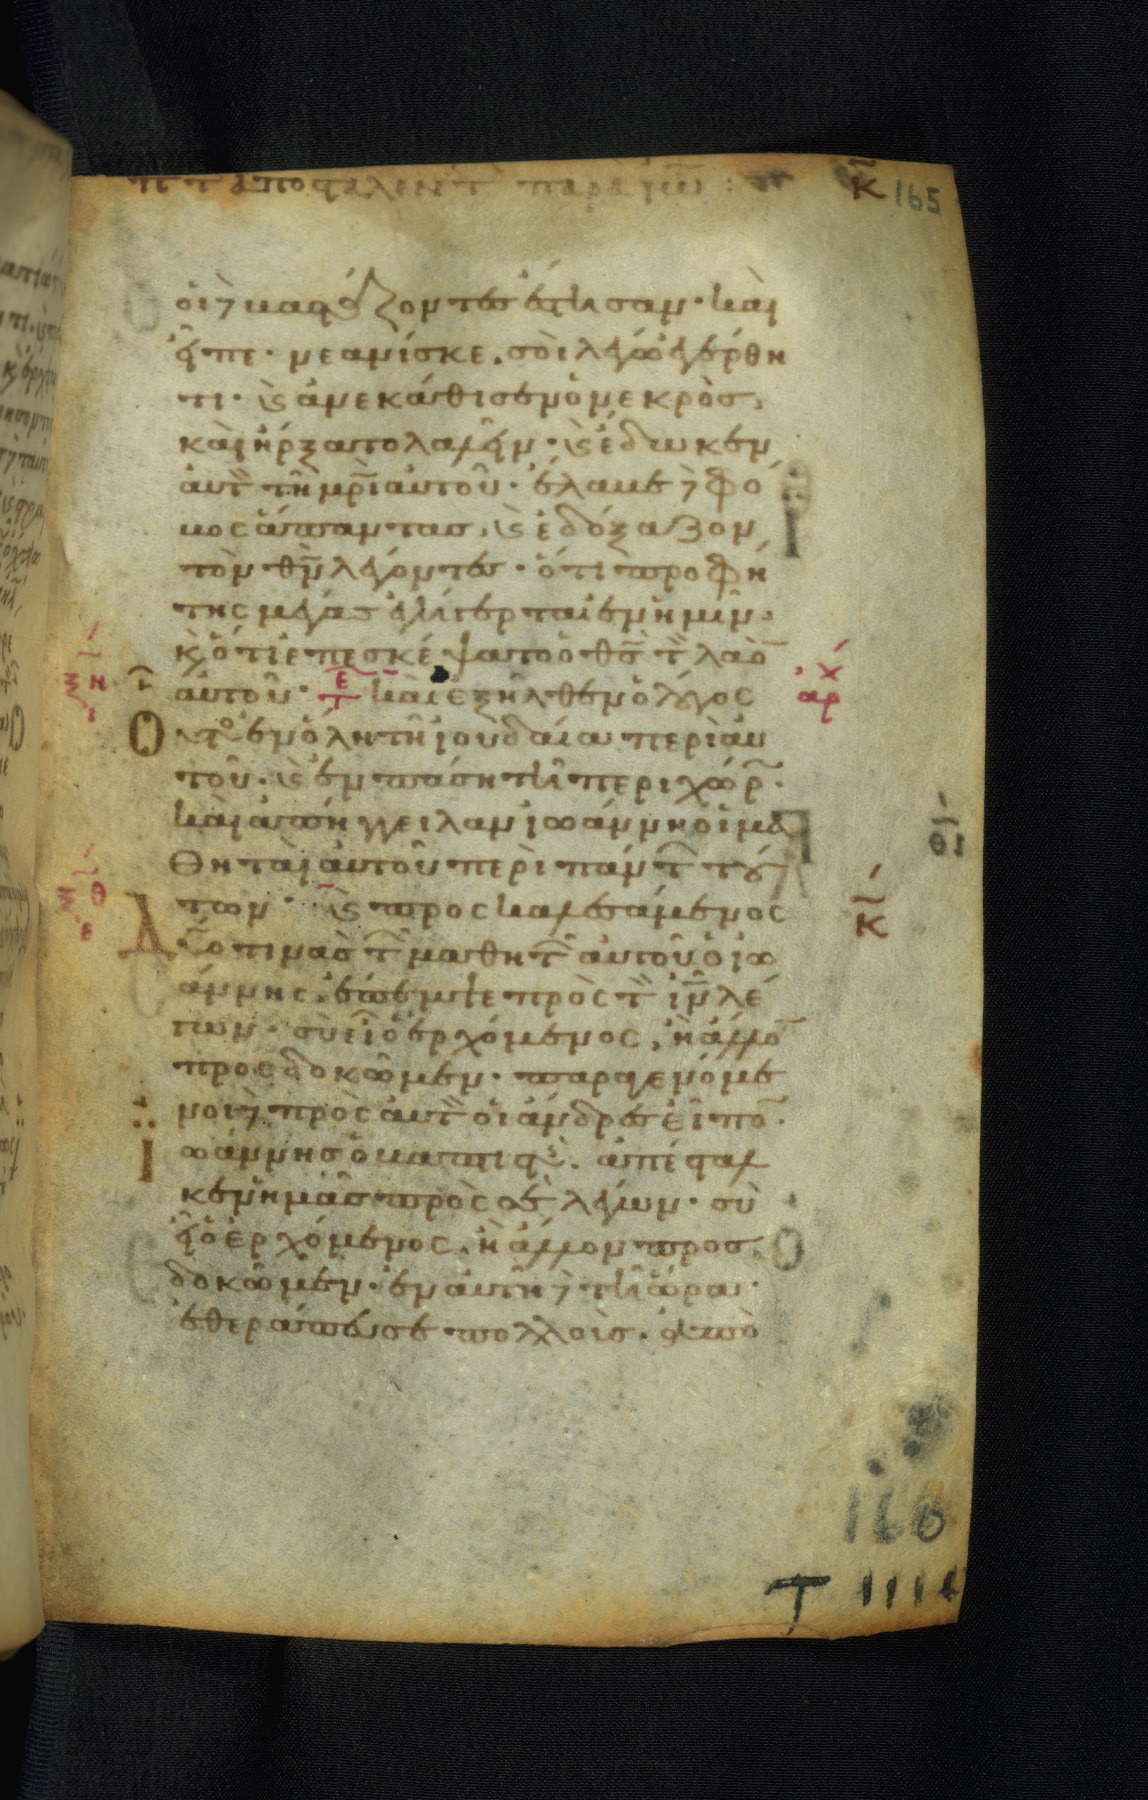 κ̅ 165
οἱ δὲ βαστάζοντες ἔστησαν· καὶ
εἶπε· νεανίσκε, σοὶ λέγω ἐγέρθη
τι· κ̀ ἀνεκάθισεν ὁ νεκρὸς,
καὶ ἤρξατο λαλεῖν· κ̀ ἔδωκεν
αὐτ̀ τῆ μρ̅ι αὐτοῦ· ἔλαβε δὲ φό
βος ἅπαντας, κ̀ ἐδόξαζον
τὸν θν̅ λέγοντες· ὅτι προφή
της μέγας ἐγήγερται ἐν ἡμῖν·
κ̀ ὅτι ἐπεσκέψατο ὁ θς̅ τ̀ λαὸ̅
αὐτοῦ· τε καὶ ἐξῆλθεν ὁ λόγος
αρχ
Οὗτο ἐν ὅλη τῆ ἰουδαία περὶ αὐ
τοῦ· κ̀ ἐν πάση τῆ περιχώρ·
καὶ ἀπήγγειλαν ἰωάννη οἱ μα
θηταὶ αὐτοῦ περὶ πάντ τού
των· κ̀ προσκαλεσάμενος
κ̅
Δύο τινὰς τ̑ μαθητ̑ αὐτοῦ ὁ ἰω
άννης, ἔπεμψε πρὸς τ̀ ιν̅ λέ
γων· σὺ εἶ ὁ ἐρχόμενος, ἢ ἄλλο̅
προσδοκῶμεν· παραγενόμε
νοι δὲ πρὸς αὐτ̀ οἱ ἄνδρες εἶπο̅·
ἰωάννης ὁ βαπτιστὴς ἀπέσταλ
κεν ἡμᾶς πρὸς σὲ λέγων· σὺ
εἶ ὁ ἐρχόμενος, ἢ ἄλλον προσ
δοκῶμεν· ἐν αὐτῆ δὲ τῆ ὥρα·
ἐθεράπευσε πολλοὺς· ἀπὸ
116
T 1114